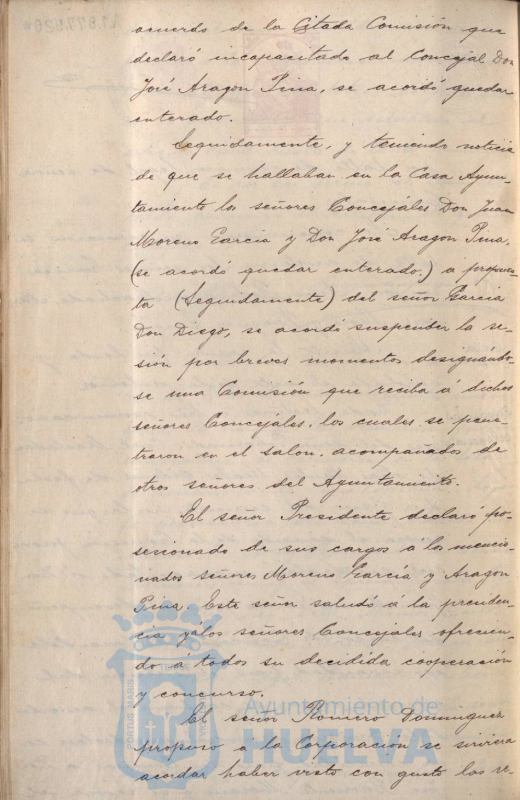 acuerdo de la Citada Comisión que
declaró incapacitado al Concejal Don
José Aragon Pina, se acordó quedar
enterado.
Seguidamente, y teniendo noticia
de que se hallaban en la Casa Ayun-
tamiento los señores Concejales Don Juan
Moreno García y Don José Aragon Pina,
(se acordó quedar enterado.) a propues-
ta (Seguidamente) del señor García
Don Diego, se acordó suspender la se-
sión por breves momentos designándo-
se una Comisión que reciba á dichos
señores Concejales, los cuales se pene-
traron en el salon, acompañados de
otros señores del Ayuntamiento.
El señor Presidente declaró po-
sesionado de sus cargos á los mencio-
nados señores Moreno García y Aragon
Pina. Este señor saludó á la presiden-
cia y á los señores Concejales ofrecien-
do a todos su decidida cooperación
y concurso.
El señor Romero Dominguez
propuso a la Corporación se sirviera
acordar haber visto con gusto los se-
PORTUS MARIS
Ayuntamiento de
HUELVA